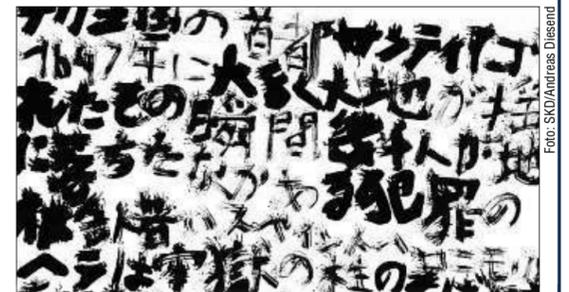 チリ王国の首都サンティアゴ
1647年に大きく大地が揺
れたその瞬間 数千人が地
に落ちたなか ある犯罪の
若いスペイン人
は牢獄の柱の
Foto: SKD/Andreas Diesend